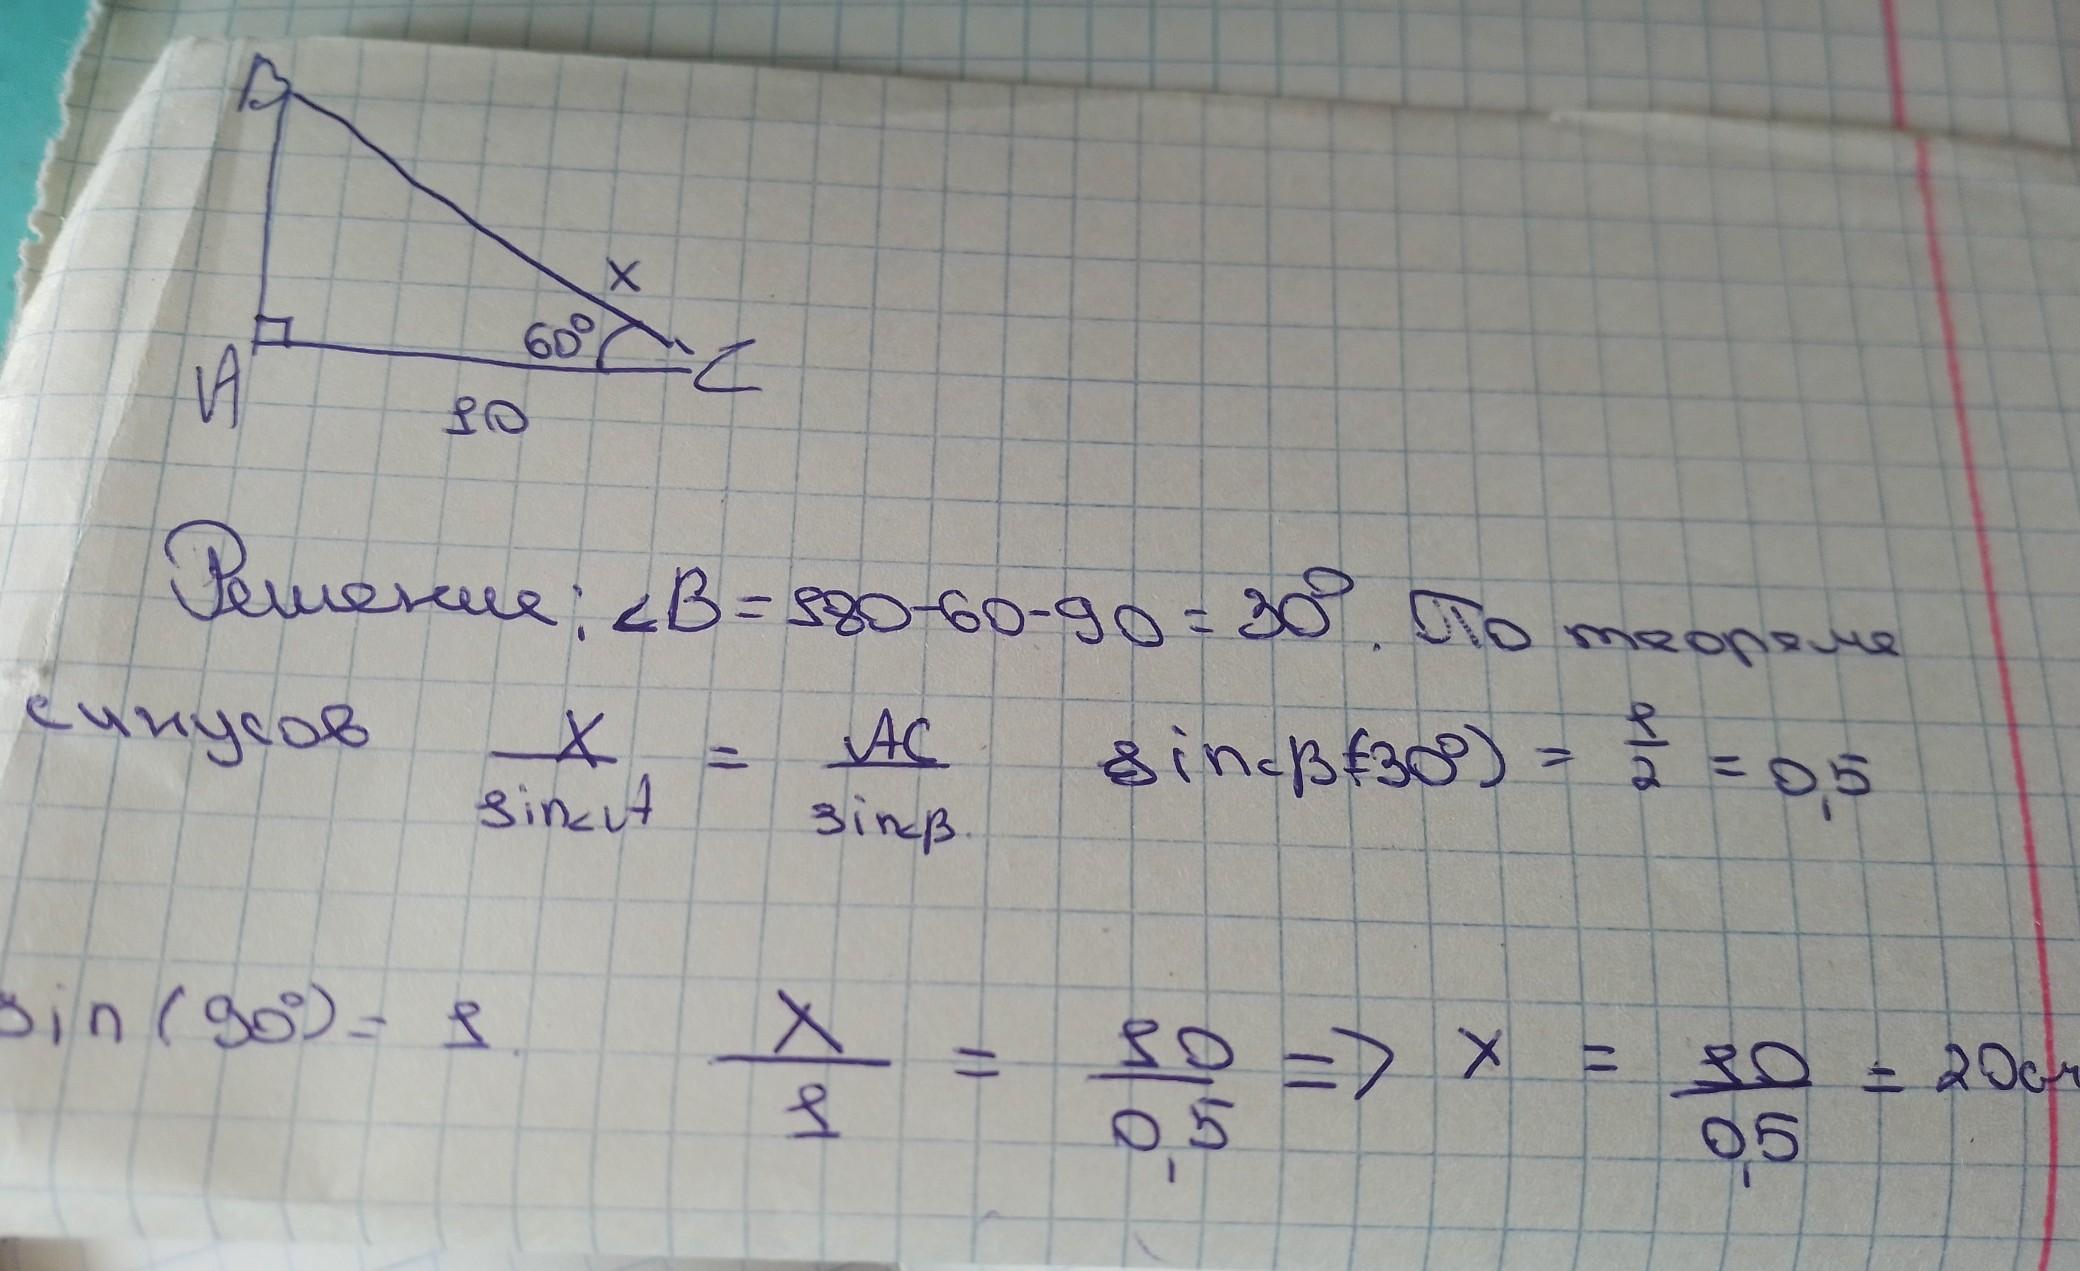 B
x
60°
A
C
10
Решение: ∠B = 180-60-90 = 30°. По теореме
синусов x/sin∠A = AC/sin∠B. sin∠B(=30°) = 1/2 = 0,5
sin(90°) = 1. x/1 = 10/0,5 => x = 10/0,5 = 20см